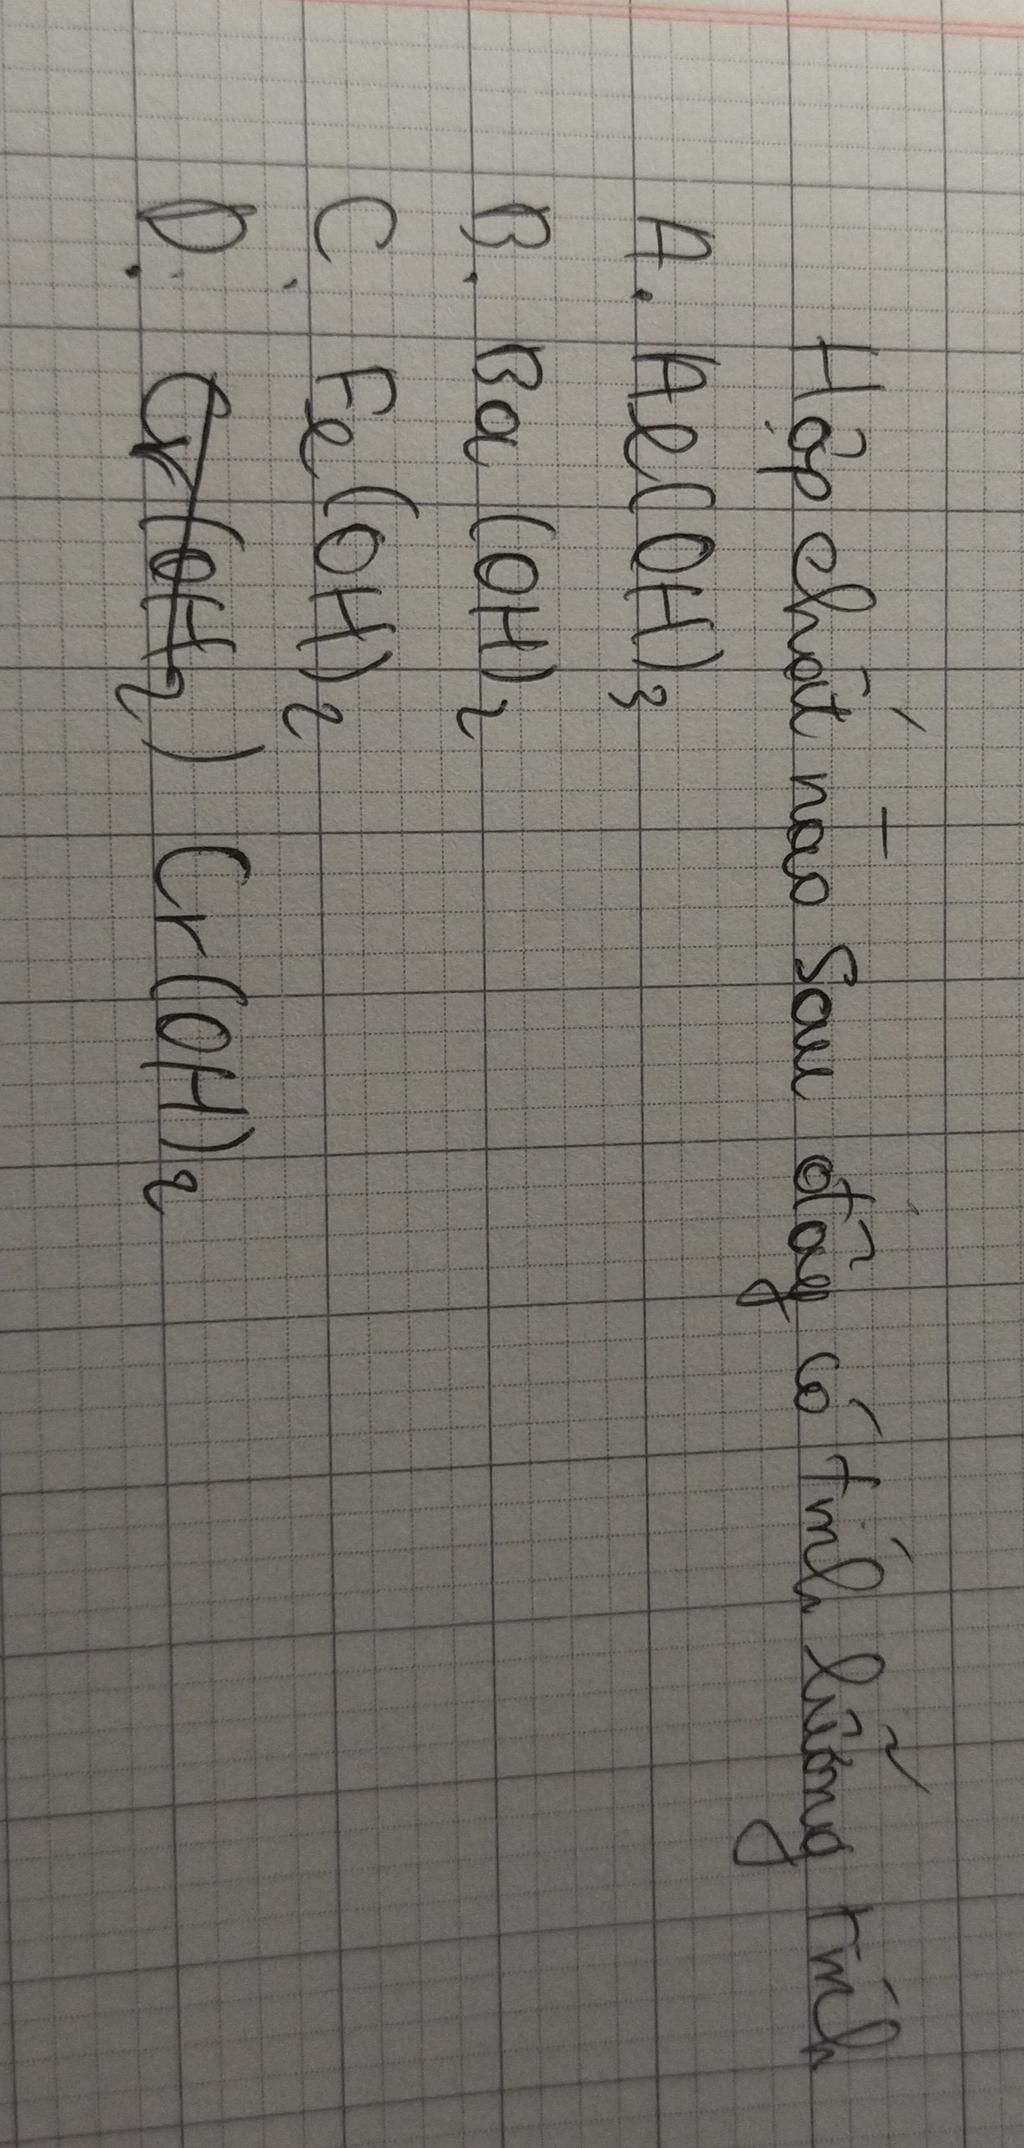 Hợp chất nào sau đây có tính lưỡng tính
A. Al(OH)3
B. Ba(OH)2
C. Fe(OH)2
D. Cr(OH2) Cr(OH)2